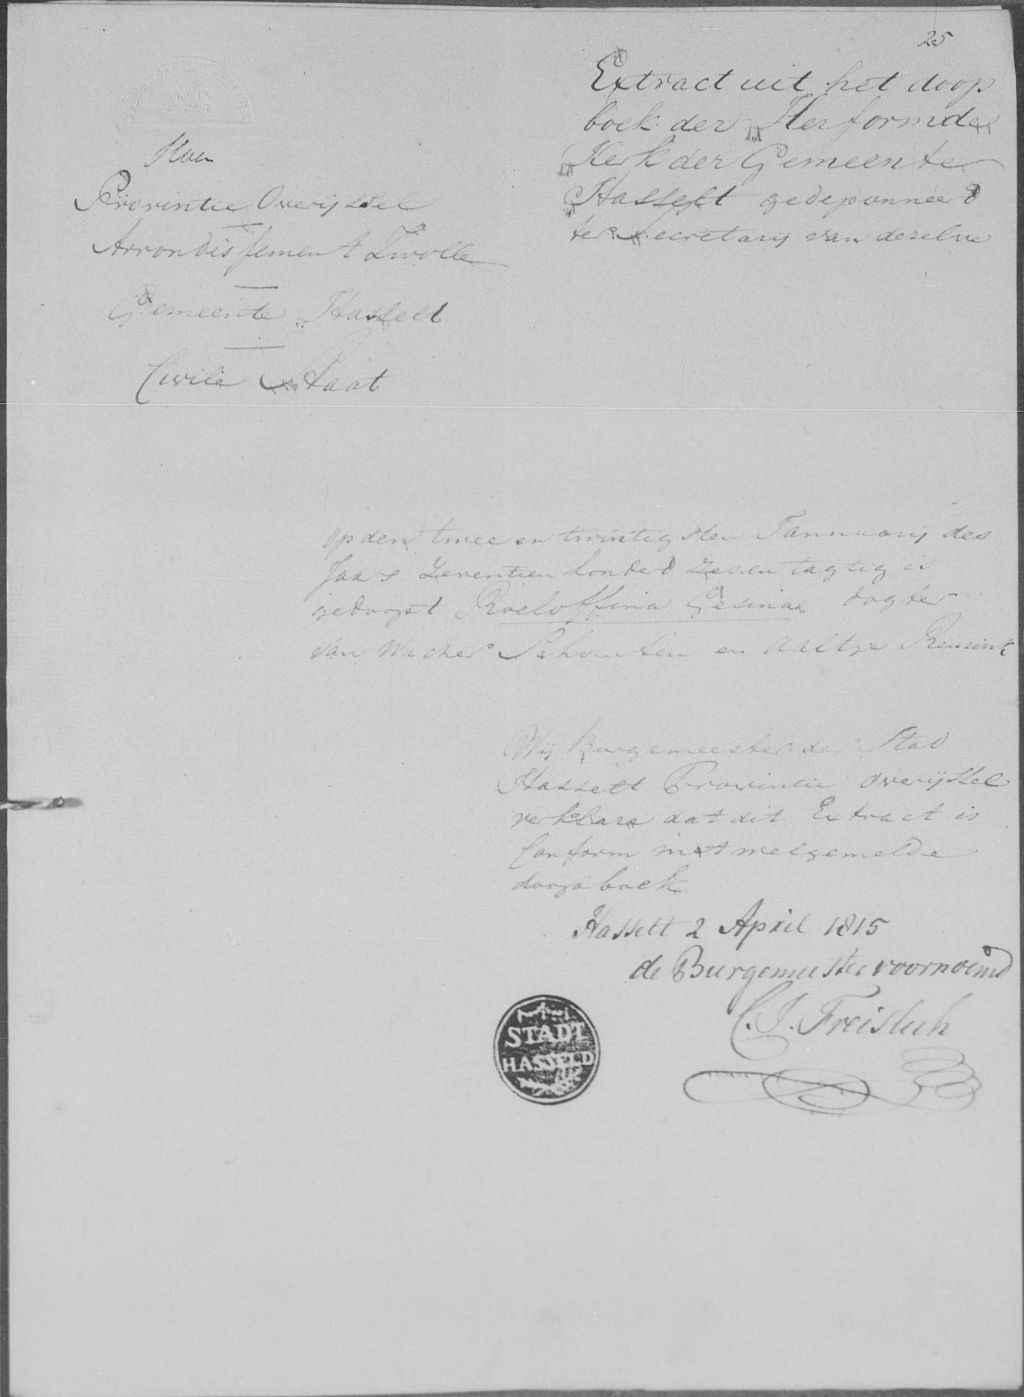 25
Extract uit het doop
boek der Herformde
Kerk der Gemeente
Hasselt gedeponneerd
ter Secretary van dezelve
Provintie Overijssel
Arrondissement Zwolle
Gemeente Hasselt
Civile Staat
op den twee en twintigsten Jannuarij des
Jaars Zeventien honderd zes en tagtig is
gedoopt Roeloffina Gesina dogter
van Wicher Schouten en Aaltje
Wij Burgemeester der Stad
Hasselt Provintie Overijssel
verklare dat dit Extract is
Conform met welgemelde
doopboek
Hasselt 2 April 1815
de Burgemeester voornoemd
C. J. Freislich
STADT
HASSELD